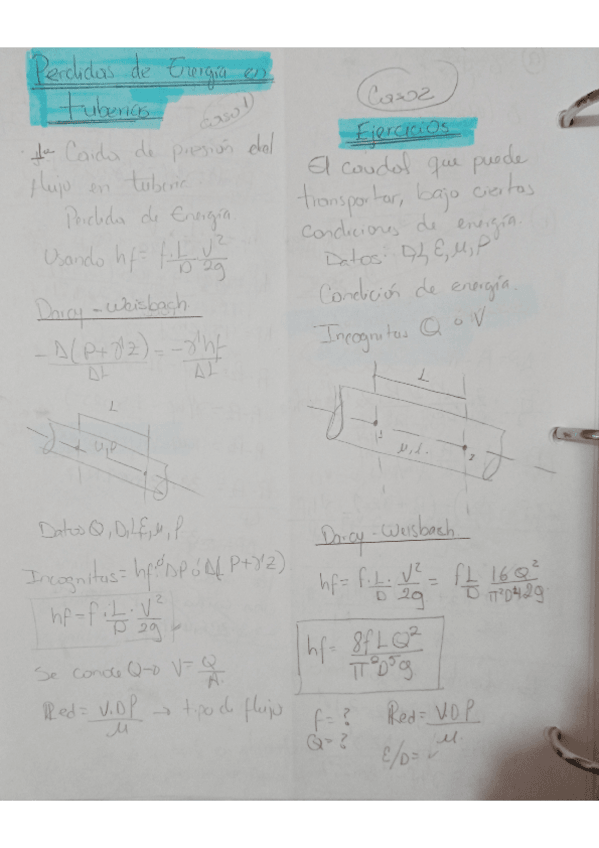 Perdidas de Energia en
tuberias
Caso 1
1er Caida de presion del
flujo en tuberia
Perdida de Energia
Usando hf = f · L/D · V²/2g
Darcy - Weisbach
- Δ(P+γz)/ΔL = -γhf/ΔL
L
Datos Q, D, L, ε, μ, ρ
Incognitas = hf ó ΔP ó Δ(P+γz)
hf = f · L/D · V²/2g
Se conoce Q → V = Q/A
Red = V.Dρ/μ → tipo de flujo
Caso 2
Ejercicios
El caudal que puede
transportar, bajo ciertas
condiciones de energia.
Datos: D, L, ε, μ, ρ
Condición de energia.
Incognitas Q o V
L
1
2
Darcy - Weisbach
hf = f · L/D · V²/2g = f L/D 16Q²/π²D⁴2g
hf = 8fLQ²/π²D⁵g
f = ? Red = V.Dρ/μ
Q = ?
ε/D = ✓